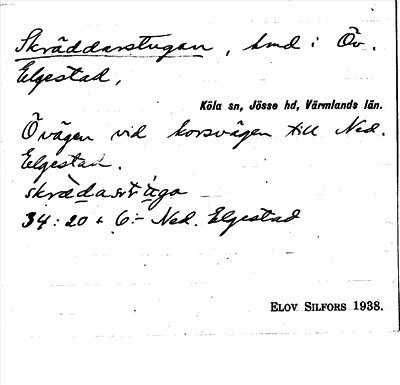 Skräddarstugan, hmd i Öv.
Elgestad,
Köla sn, Jösse hd, Värmlands län.
Övägen vid korsvägen till Ned.
Elgestad.
34:20 + 6:- Ned. Elgestad
ELOV SILFORS 1938.